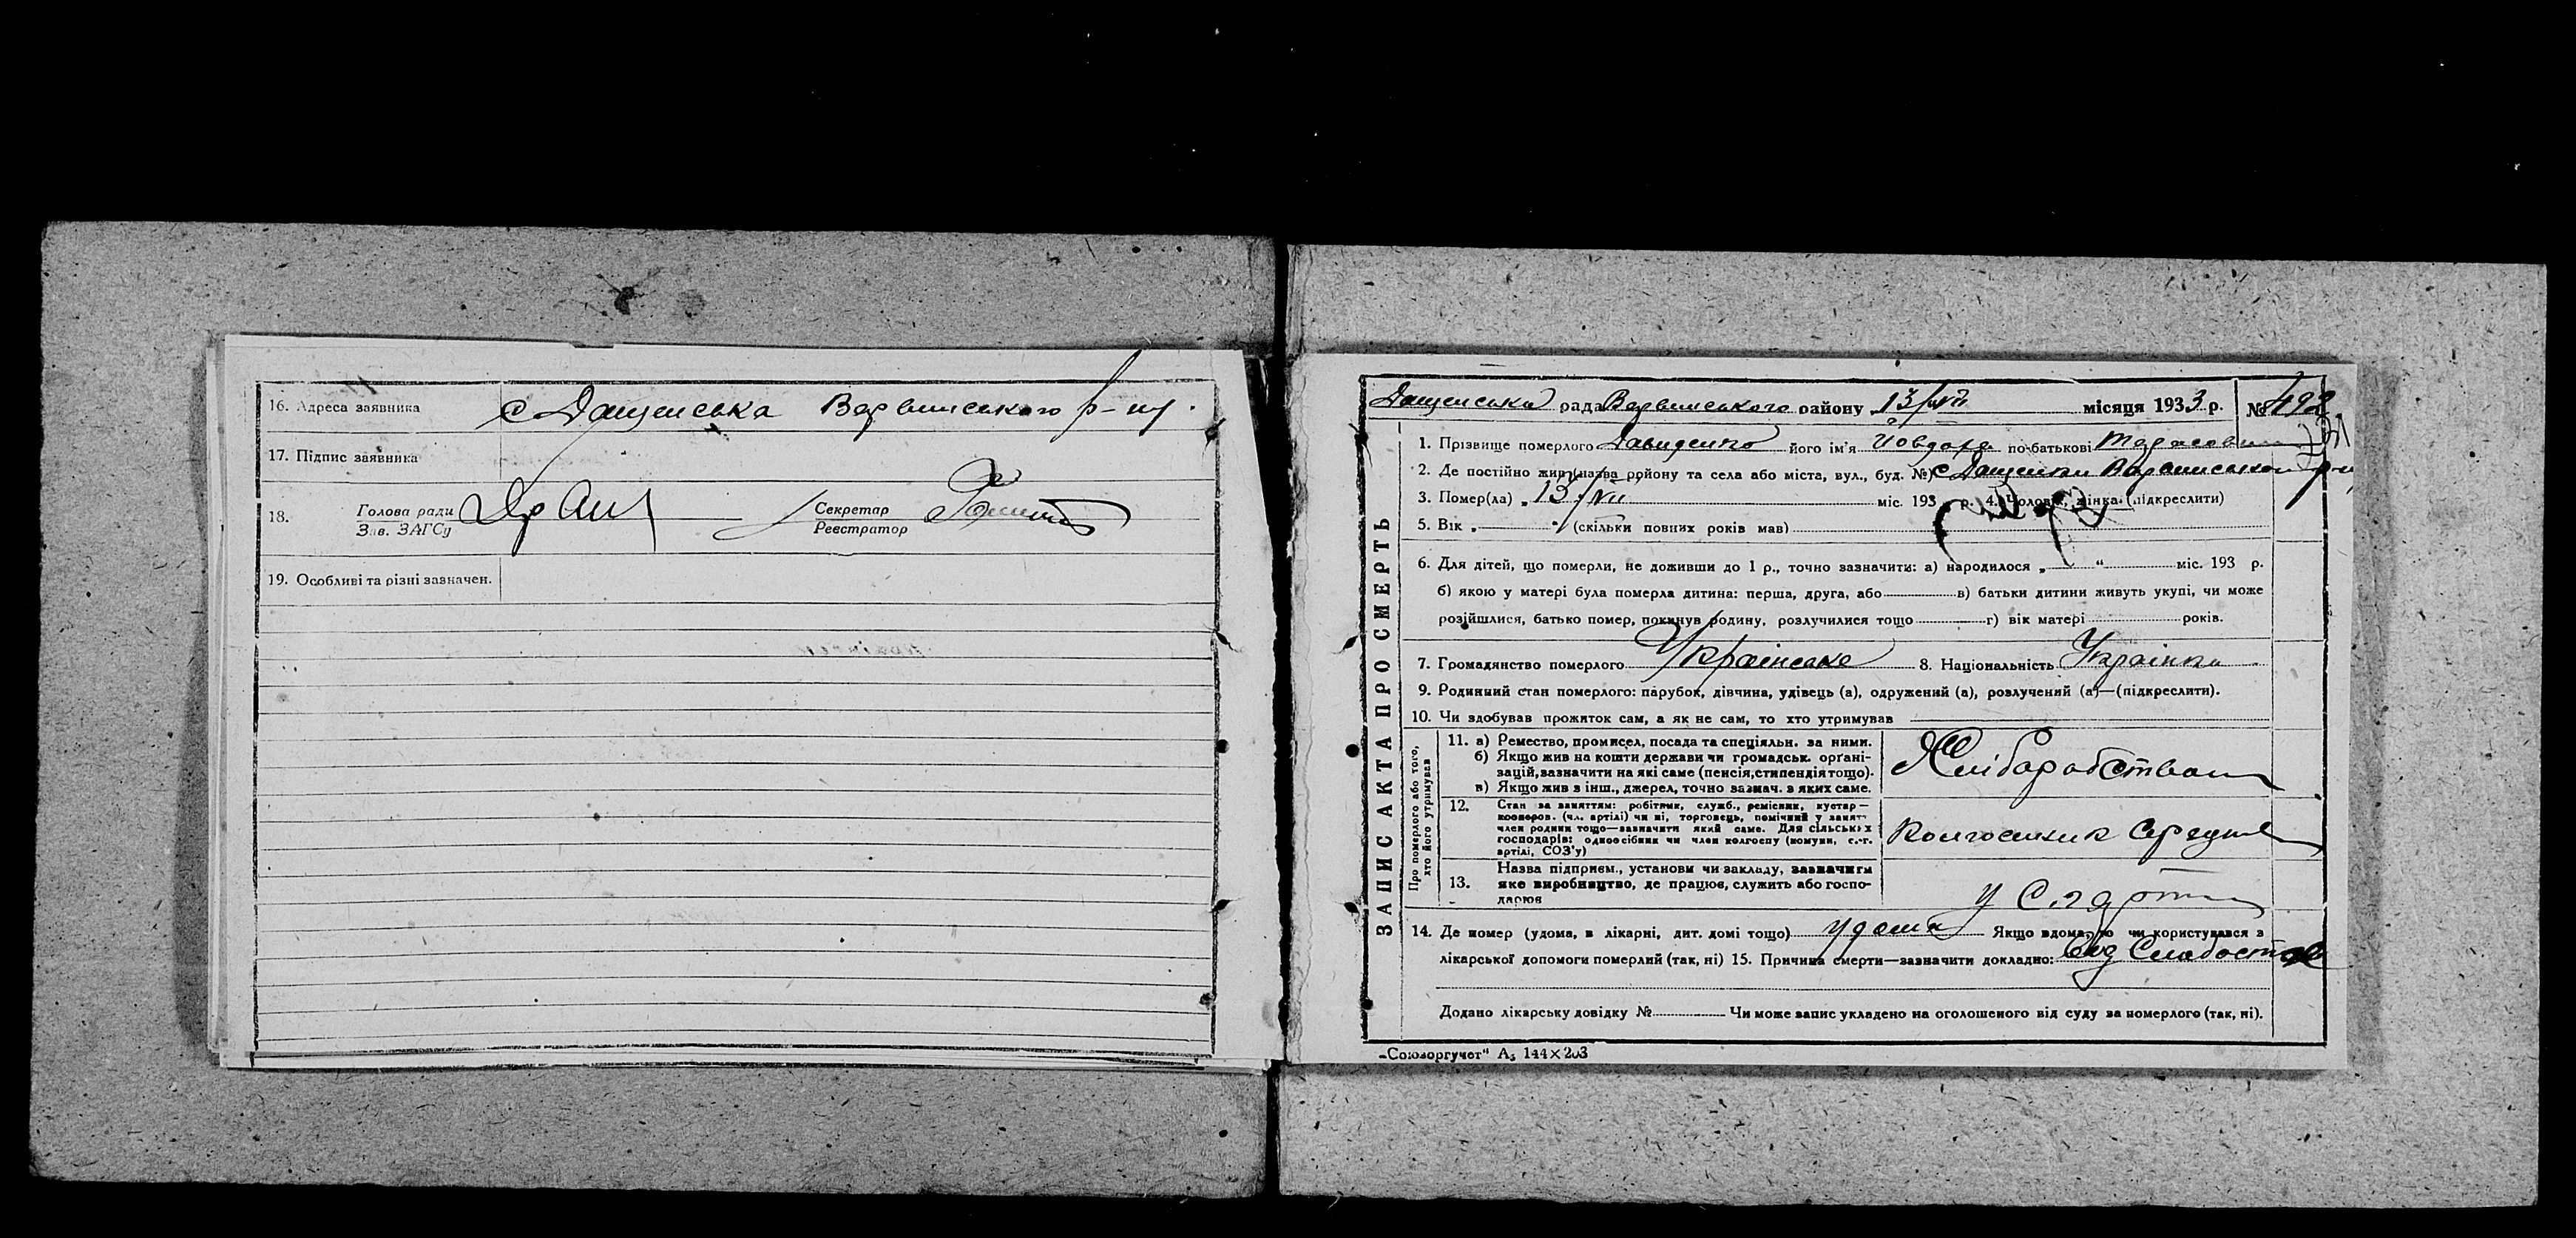 16. Адреса заявника с Дащенська Варвинського р-ну.
17. Підпис заявника
18. Голова ради Секретар
Зав. ЗАГСу Реестратор
19. Особливі та різні зазначен.
Дащенська рада Варвинського району 13/VII місяця 1933 р. № 492
1. Прізвище померлого Давиденко його ім'я Йовдоха по-батькові
2. Де постійно жив (назва ройону та села або міста, вул., буд. №) с Дащенки Варвинського р-ну
3. Помер(ла) „ 13/VII міс. 193 р. 4. Чоловік, жінка (підкреслити)
5. Вік „ " (скільки повних років мав)
6. Для дітей, що померли, не доживши до 1 р., точно зазначити: а) народилося „ “ міс. 193 р.
б) якою у матері була померла дитина: перша, друга, або в) батьки дитини живуть укупі, чи може
розійшлися, батько помер, покинув родину, розлучилися тощо г) вік матері років.
7. Громадянство померлого Українське 8. Національність Українка
9. Родинний стан померлого: парубок, дівчина, удівець (а), одружений (а), розлучений (а)—(підкреслити).
10. Чи здобував прожиток сам, а як не сам, то хто утримував
ЗАПИС АКТА ПРО СМЕРТЬ
Про померлого або того,
хто його утримував
11. а) Ремество, промисел, посада та спеціяльн. за ними.
б) Якщо жив на кошти держави чи громадськ. орґані-
зацій, зазначити на які саме (пенсія, стипендія тощо).
в) Якщо жив з інш., джерел, точно зазнач. з яких саме.
Хліборобством
12. Стан за заняттям: робітник, служб., ремісник, кустар—
кооперов. (чл. артілі) чи ні, торговець, помічний у занят-
член родини тощо—зазначити який саме. Для сільськ х
господарів: одноосібник чи член колгоспу (комуни, с.-г.
артілі, СОЗ'у)
колгоспник середняк
13. Назва підприєм., установи чи закладу, зазначити
яке виробництво, де працюв, служить або госпо-
дарюв
у
14. Де помер (удома, в лікарні, дит. домі тощо) удома Якщо вдома, то чи користувався з
лікарської допомоги померлий (так, ні) 15. Причина смерти—зазначити докладно: від слабости
Додано лікарську довідку № Чи може запис укладено на оголошеного від суду за померлого (так, ні).
„Союзоргучет“ А₅ 144×203